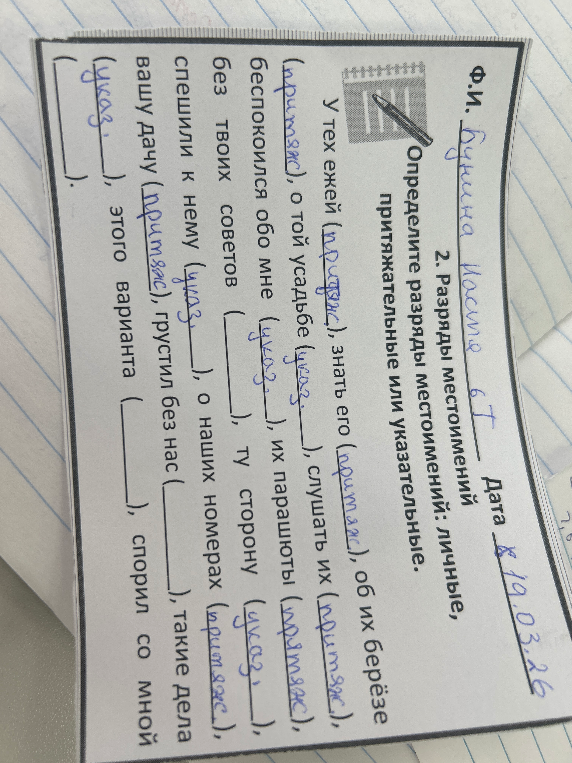 Ф.И. Бунина Настя 6Т Дата 19.03.26
2. Разряды местоимений
Определите разряды местоимений: личные,
притяжательные или указательные.
У тех ежей (притяж), знать его (притяж), об их берёзе
(притяж), о той усадьбе (указ.), слушать их (притяж),
беспокоился обо мне (указ.), их парашюты (прятяж),
без твоих советов (______), ту сторону (указ.),
спешили к нему (указ.), о наших номерах (притяж.),
вашу дачу (притяж), грустил без нас (______), такие дела
(указ.), этого варианта (______), спорил со мной
(______).